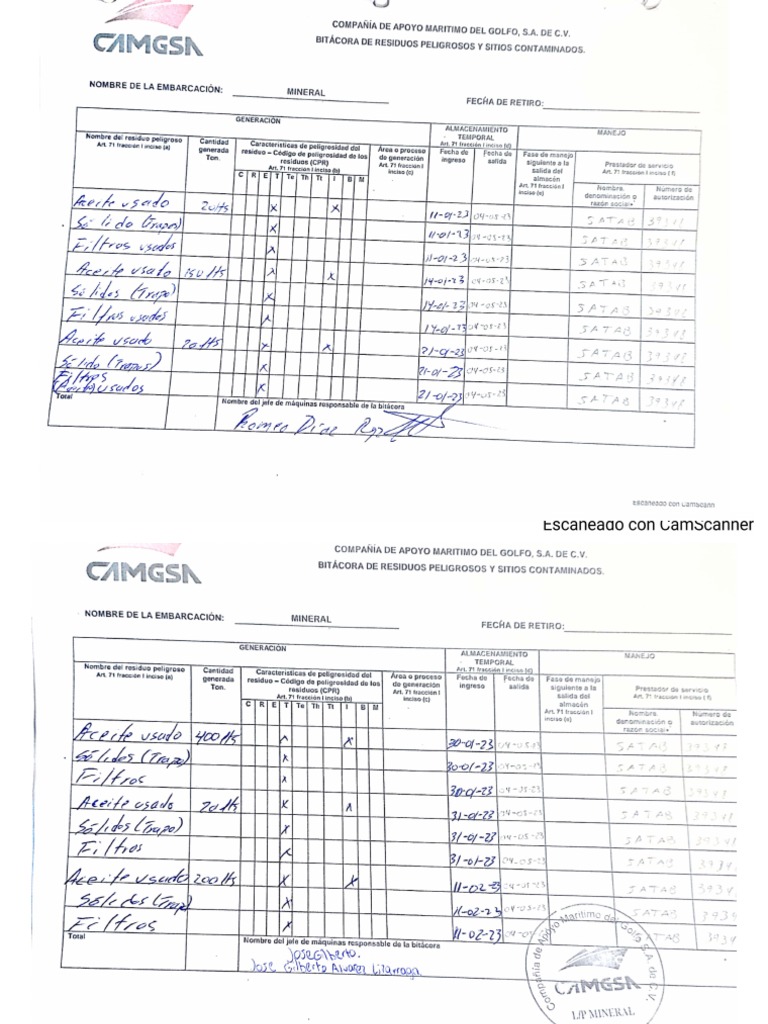 CAMGSA
COMPAÑÍA DE APOYO MARITIMO DEL GOLFO, S.A. DE C.V.
BITÁCORA DE RESIDUOS PELIGROSOS Y SITIOS CONTAMINADOS.
NOMBRE DE LA EMBARCACIÓN: MINERAL
FECHA DE RETIRO:
GENERACIÓN
ALMACENAMIENTO TEMPORAL Art. 71 fracción I inciso (d)
MANEJO
Nombre del residuo peligroso Art. 71 fracción I inciso (a)
Cantidad generada Ton.
Características de peligrosidad del residuo – Código de peligrosidad de los residuos (CPR) Art. 71 fracción I inciso (b)
Área o proceso de generación Art. 71 fracción I inciso (c)
Fecha de ingreso
Fecha de salida
Fase de manejo siguiente a la salida del almacén Art. 71 fracción I inciso (e)
Prestador de servicio Art. 71 fracción I inciso (f)
Nombre, denominación o razón social
Número de autorización
C R E T Te Th Tt I B M
Aceite usado 20lts x x 11-01-23 04-05-23 SATAB 39348
Sólido (Trapos) x 11-01-23 04-05-23 SATAB 39348
Filtros usados x 11-01-23 04-05-23 SATAB 39348
Aceite usado 150 lts x x 14-01-23 04-05-23 SATAB 39348
Sólidos (Trapo) x 14-01-23 04-05-23 SATAB 39348
Filtros usados x 14-01-23 04-05-23 SATAB 39348
Aceite usado 20lts x x 21-01-23 04-05-23 SATAB 39348
Sólido (Trapos) x 21-01-23 04-05-23 SATAB 39348
Filtros usados x 21-01-23 04-05-23 SATAB 39348
Total
Nombre del jefe de máquinas responsable de la bitácora
Romeo Diaz
Escaneado con CamScann
Escaneado con CamScanner
CAMGSA
COMPAÑÍA DE APOYO MARITIMO DEL GOLFO, S.A. DE C.V.
BITÁCORA DE RESIDUOS PELIGROSOS Y SITIOS CONTAMINADOS.
NOMBRE DE LA EMBARCACIÓN: MINERAL
FECHA DE RETIRO:
GENERACIÓN
ALMACENAMIENTO TEMPORAL Art. 71 fracción I inciso (d)
MANEJO
Nombre del residuo peligroso Art. 71 fracción I inciso (a)
Cantidad generada Ton.
Características de peligrosidad del residuo – Código de peligrosidad de los residuos (CPR) Art. 71 fracción I inciso (b)
Área o proceso de generación Art. 71 fracción I inciso (c)
Fecha de ingreso
Fecha de salida
Fase de manejo siguiente a la salida del almacén Art. 71 fracción I inciso (e)
Prestador de servicio Art. 71 fracción I inciso (f)
Nombre, denominación o razón social
Número de autorización
C R E T Te Th Tt I B M
Aceite usado 400lts x x 30-01-23 04-05-23 SATAB 39348
Sólidos (Trapo) x 30-01-23 04-05-23 SATAB 39348
Filtros x 30-01-23 04-05-23 SATAB 39348
Aceite usado 20lts x x 31-01-23 04-05-23 SATAB 39348
Sólidos (Trapo) x 31-01-23 04-05-23 SATAB 3934
Filtros x 31-01-23 04-05-23 SATAB 3934
Aceite usado 200lts x x 11-02-23 04-05-23 SATAB 3934
Sólidos (Trapo) x 11-02-23 04-05-23 SATAB 3934
Filtros x 11-02-23 04-05 TAB 3934
Total
Nombre del jefe de máquinas responsable de la bitácora
Jose Gilberto.
Jose Gilberto Alvarez Lizarraga
Compañía de Apoyo Marítimo del Golfo S.A. de C.V.
CAMGSA
L/P MINERAL